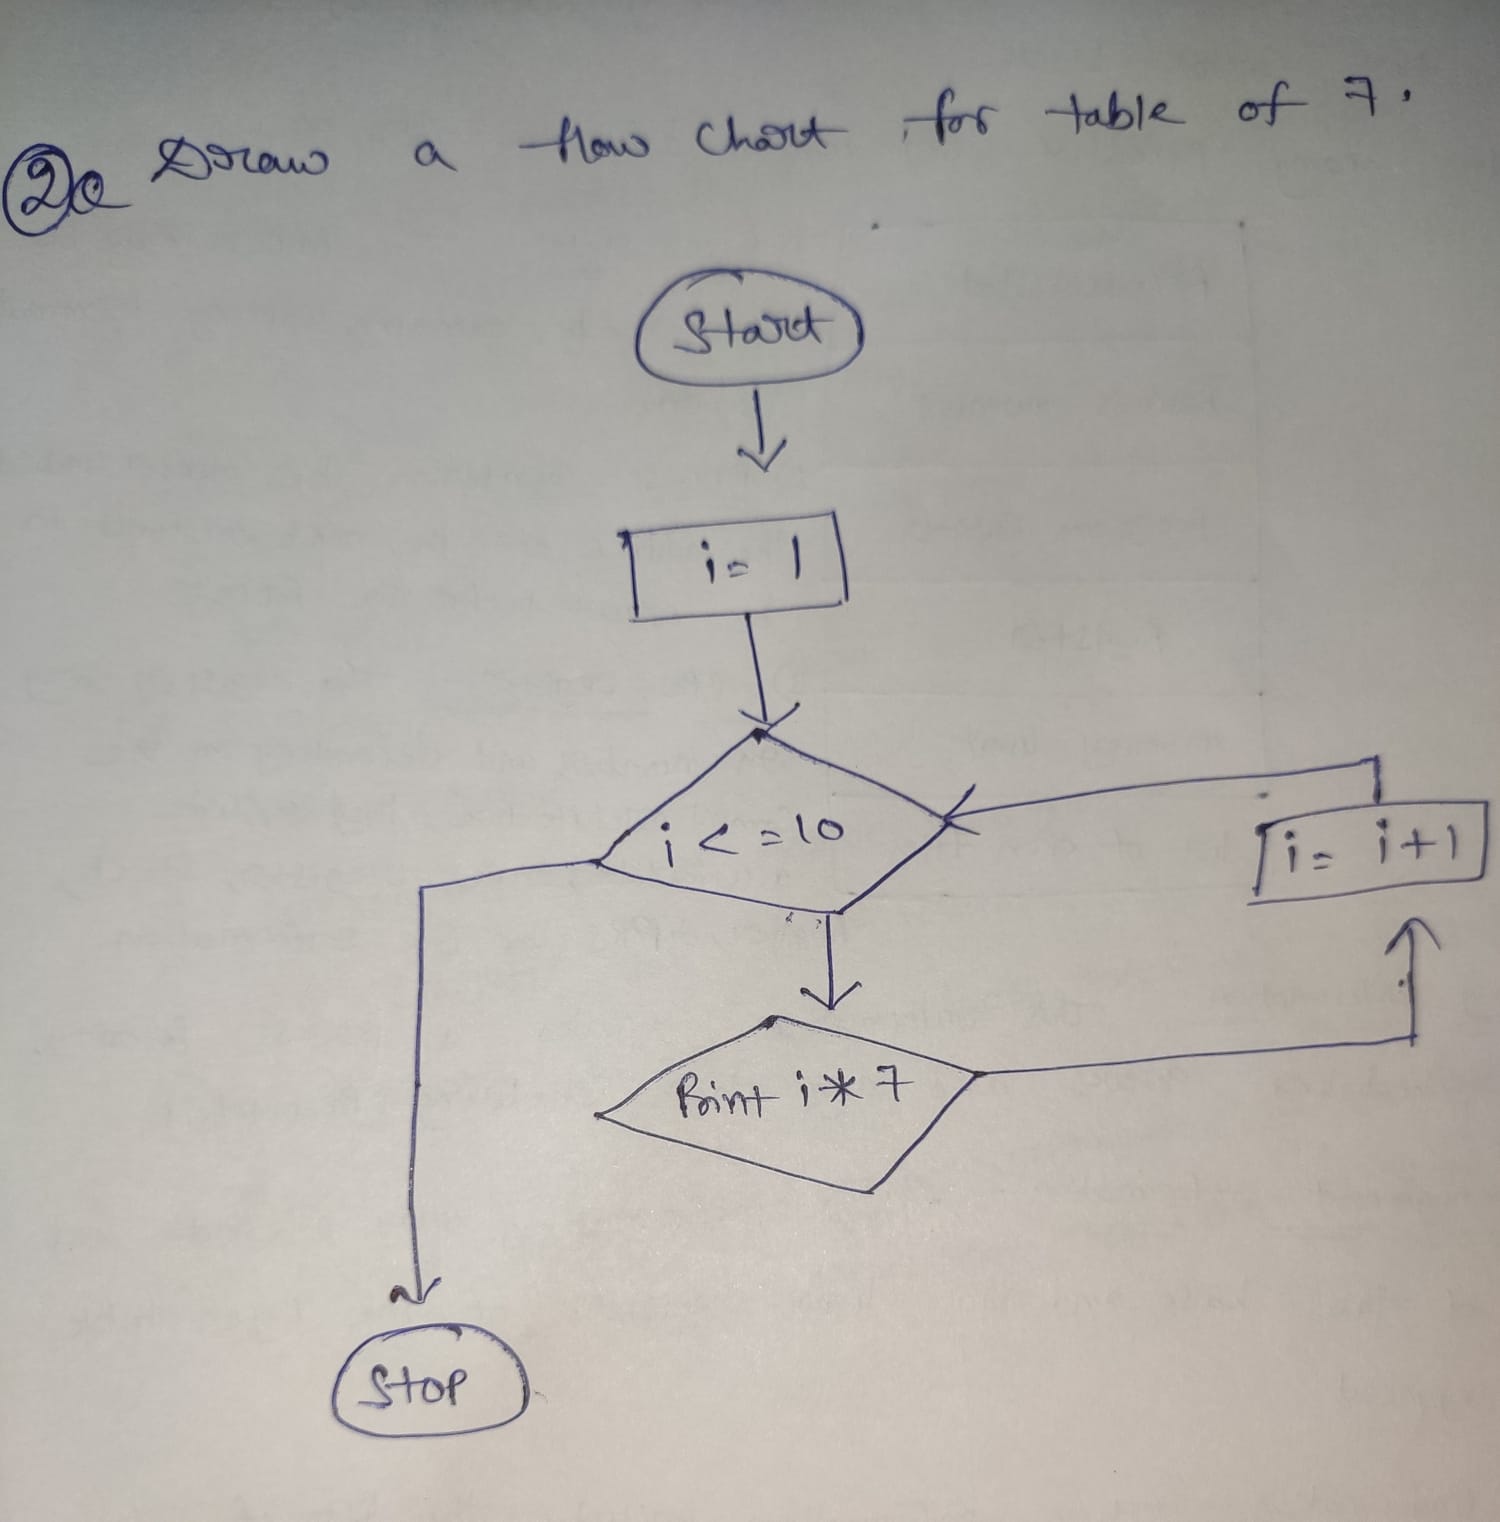 2Q Draw a flow chart for table of 7.
Start
i = 1
i <= 10
i = i+1
Print i * 7
Stop